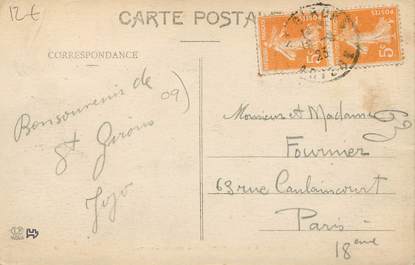 12€
CARTE POSTALE
CORRESPONDANCE
Bonsouvenir de
St Girons
09)
Jojo
POSTES
5c
5c
Monsieur et Madame
Fournier
63 rue Caulaincourt
Paris
18eme